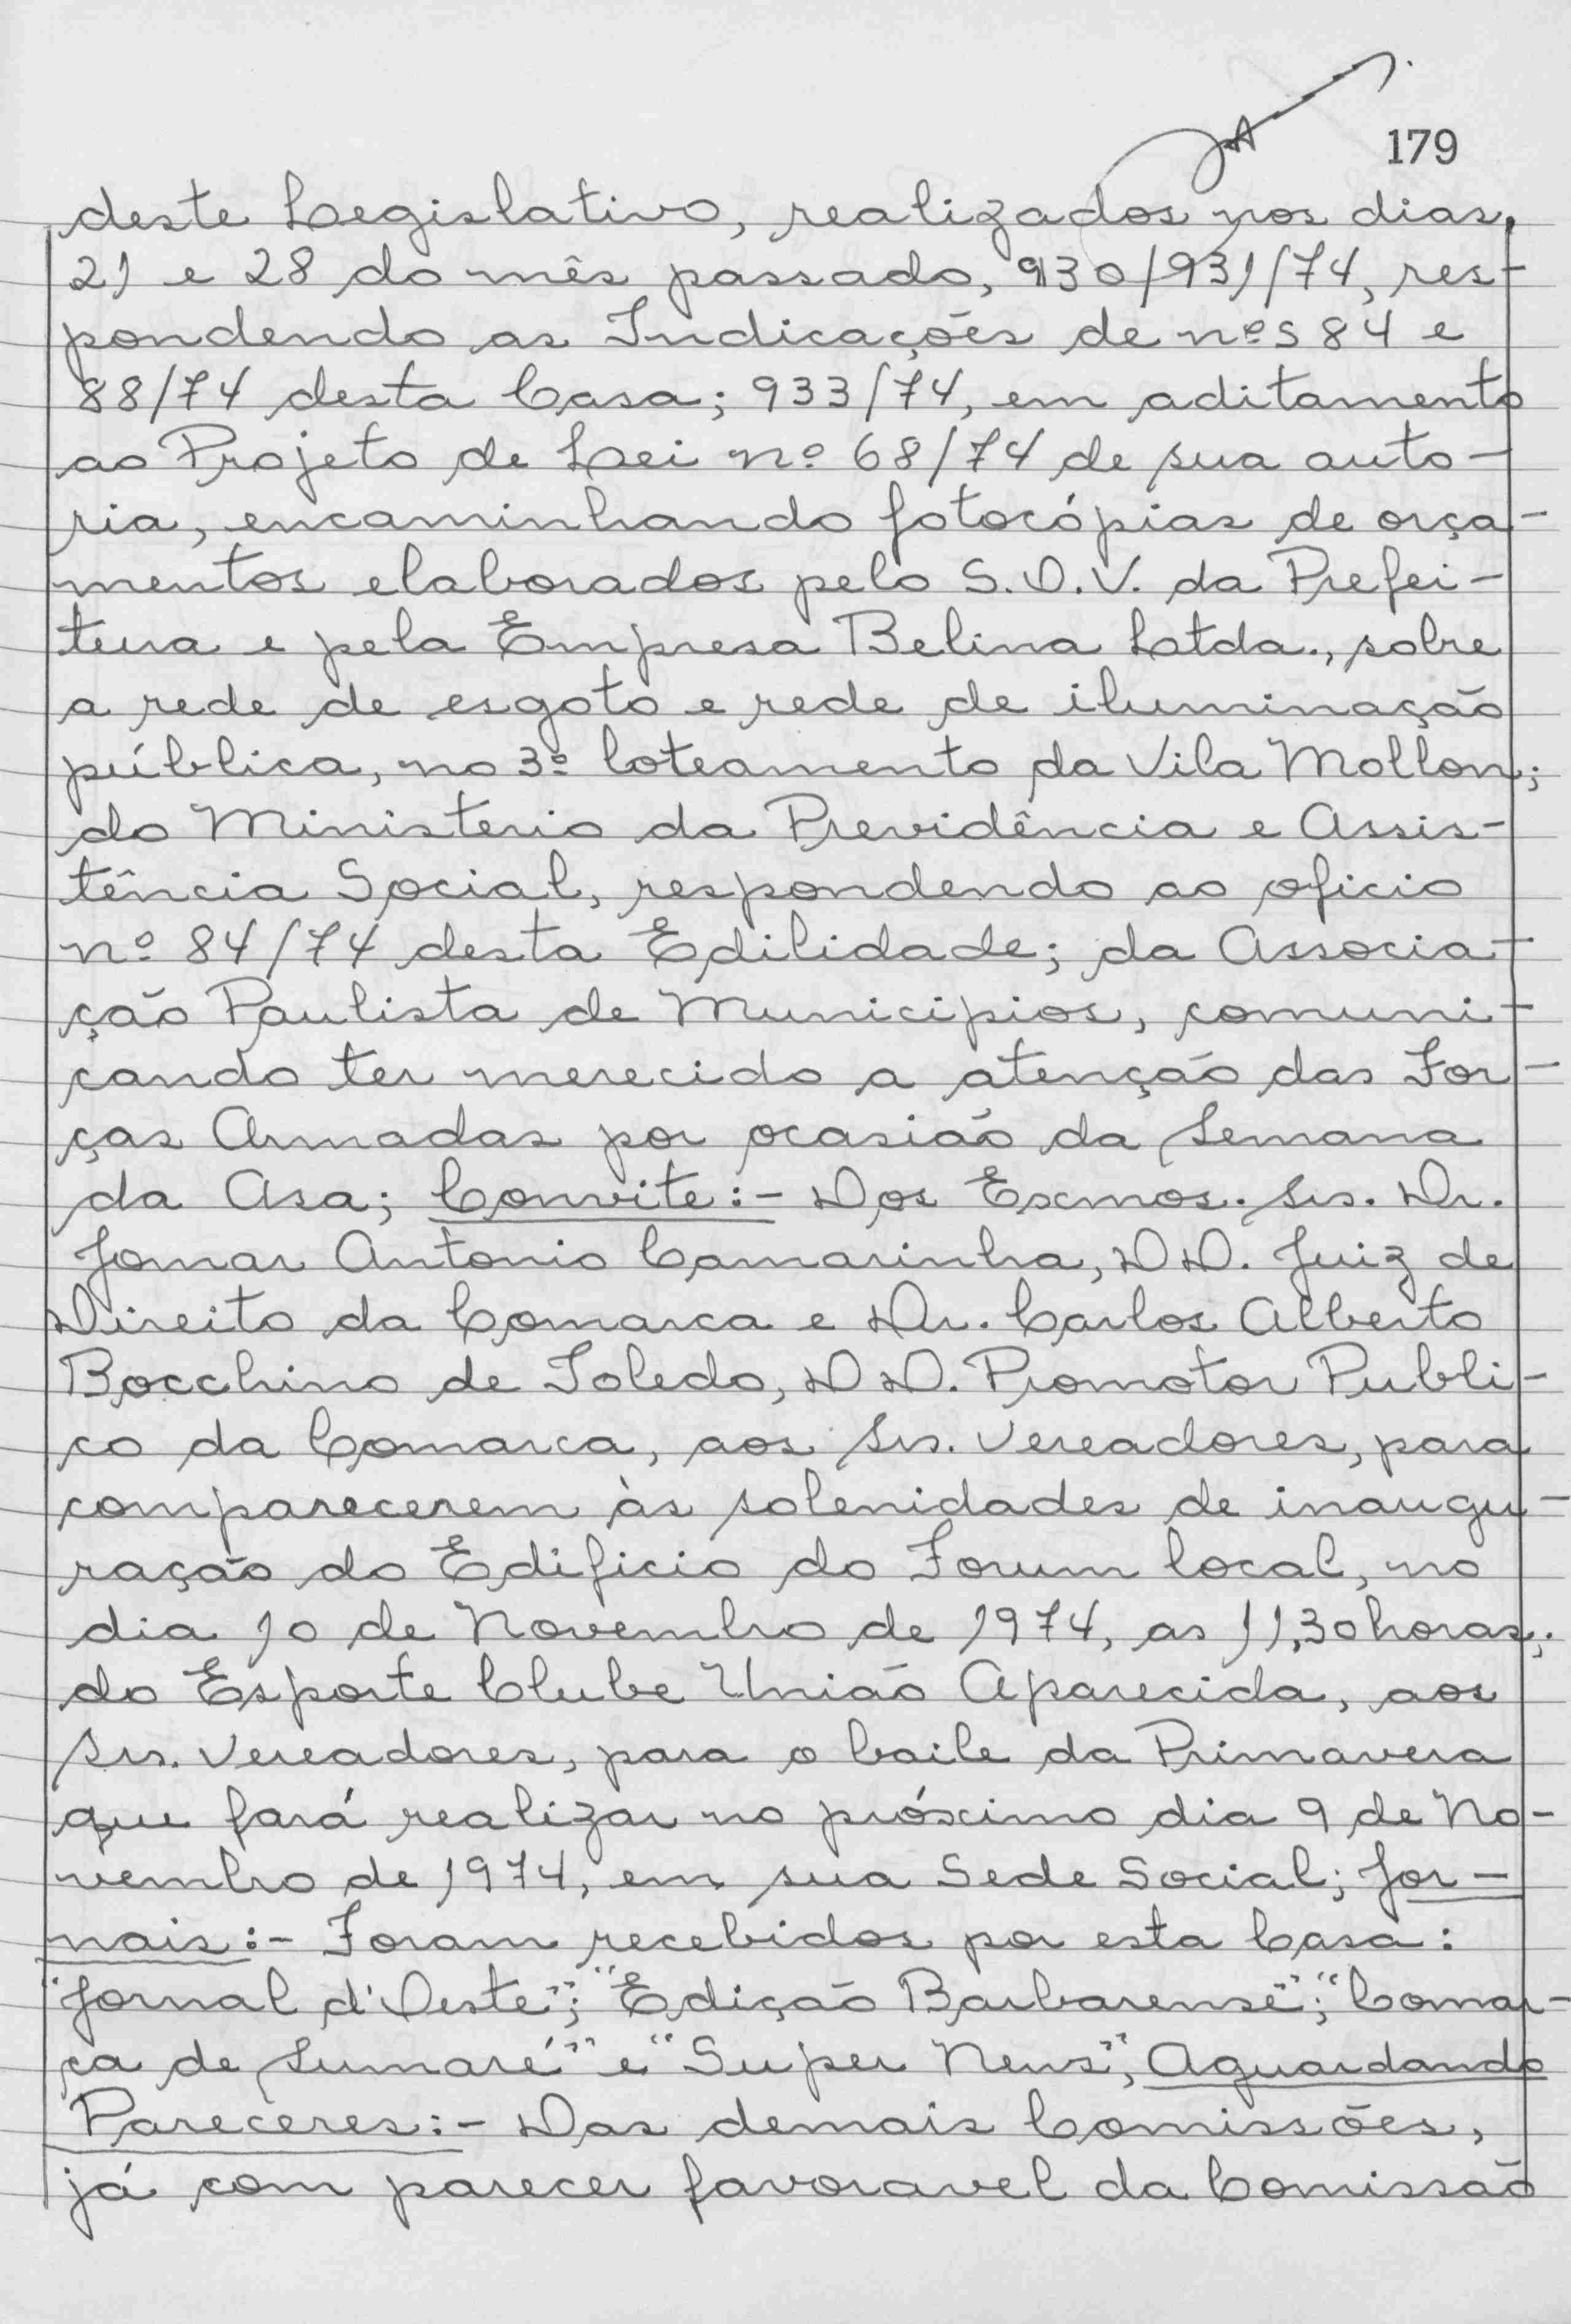 179
deste Legislativo, realizados nos dias,
21 e 28 do mês passado, 930/931/74, res-
pondendo as Indicações de nºs 84 e
88/74 desta Casa; 933/74, em aditamento
ao Projeto de Lei nº 68/74 de sua auto-
ria, encaminhando fotocópias de orça-
mentos elaborados pelo S.O.V. da Prefei-
tura e pela Empresa Belina Ltda., sobre
a rede de esgoto e rede de iluminação
pública, no 3º loteamento da Vila Mollon;
do Ministerio da Previdência e Assis-
tência Social, respondendo ao oficio
nº 84/74 desta Edilidade; da Associa-
ção Paulista de Municipios, comuni-
cando ter merecido a atenção das For-
ças Armadas por ocasião da Semana
da Asa; Convite:- Dos Exmos. Srs. Dr.
Jomar Antonio Camarinha, DD. Juiz de
Direito da Comarca e Dr. Carlos Alberto
Bocchino de Toledo, DD. Promotor Publi-
co da Comarca, aos Srs. Vereadores, para
comparecerem às solenidades de inaugu-
ração do Edificio do Forum local, no
dia 10 de Novembro de 1974, as 11,30 horas;
do Esporte Clube União Aparecida, aos
Srs. Vereadores, para o baile da Primavera
que fará realizar no próximo dia 9 de No-
vembro de 1974, em sua Sede Social; Jor-
nais:- Foram recebidos por esta Casa:
"Jornal d'Oeste"; "Edição Barbarense"; "Comar-
ca de Sumaré" e "Super News"; Aguardando
Pareceres:- Das demais Comissões,
já com parecer favoravel da Comissão